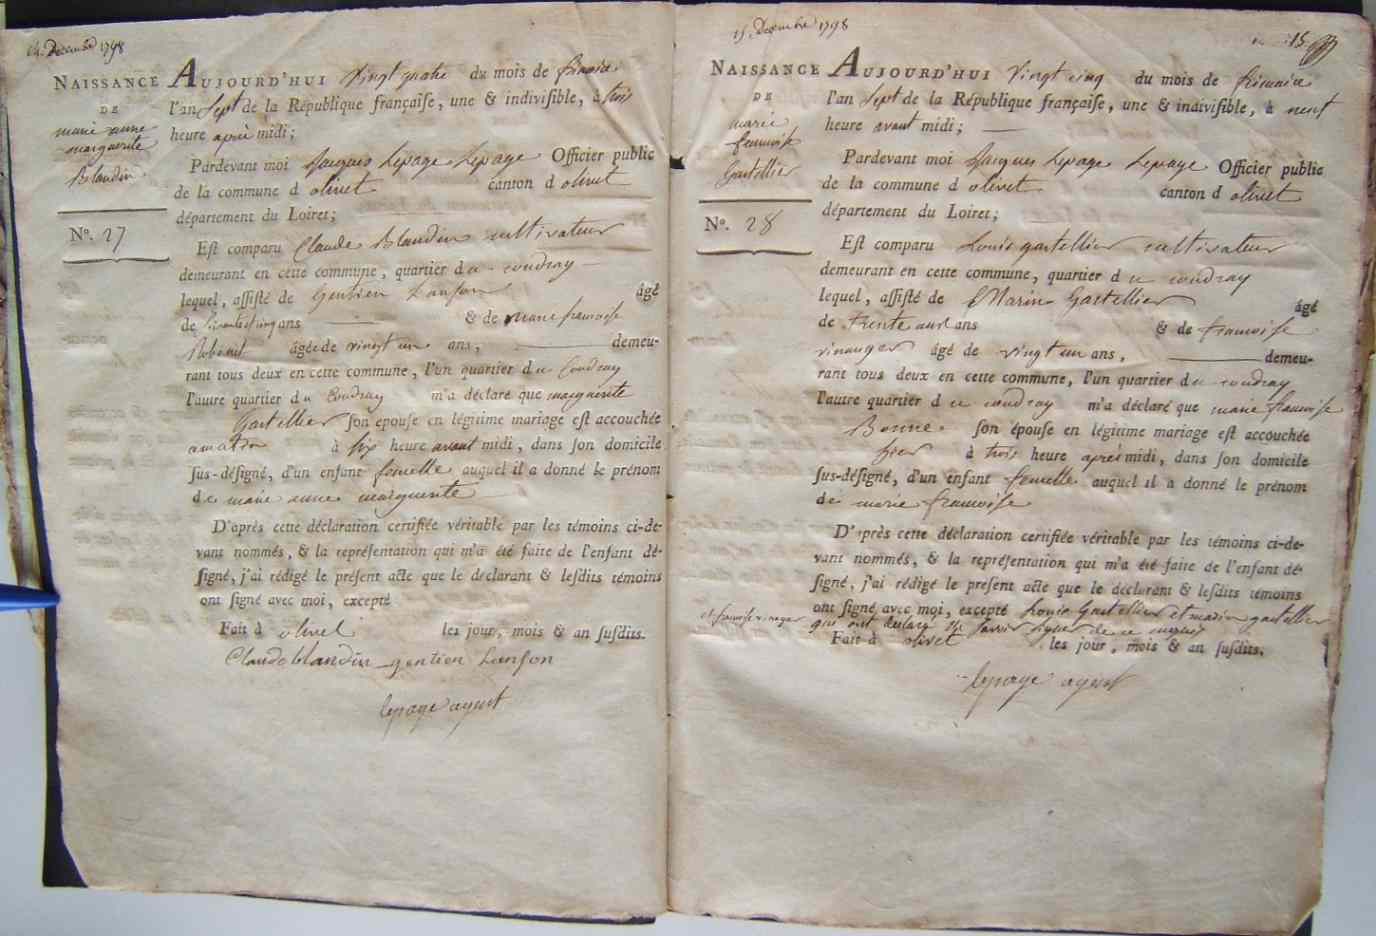 14. Decembre 1798
NAISSANCE
DE
marie anne
marguerite
Blandin
Nº. 27
AUJOURD'HUI vingt quatre du mois de frimaire
l'an sept de la République françaiſe, une & indiviſible, à trois
heure après midi;
Pardevant moi Jacques Lepage Lepage Officier public
de la commune d olivet canton d olivet
département du Loiret;
Eſt comparu Claude Blandin cultivateur
demeurant en cette commune, quartier du coudray
lequel, aſſiſté de Gentien Lanson âgé
de ans & de marie francoise
âgée de vingt un ans, demeu-
rant tous deux en cette commune, l'un quartier du Coudray
l'autre quartier du Coudray m'a déclaré que marguerite
Gastellier ſon épouse en légitime mariage eſt accouchée
à six heure avant midi, dans ſon domicile
ſus-déſigné, d'un enfant femelle auquel il a donné le prénom
de marie anne marguerite
D'après cette déclaration certifiée véritable par les témoins ci-de-
vant nommés, & la repréſentation qui m'a été faite de l'enfant dé-
ſigné, j'ai rédigé le préſent acte que le déclarant & leſdits témoins
ont ſigné avec moi, excepté
Fait à olivet les jour, mois & an ſuſdits.
Claude blandin gentien Lanson
lepage agent
15. Decembre 1798
15
NAISSANCE
DE
marie
francoise
Gastellier
Nº. 28
AUJOURD'HUI vingt cinq du mois de frimaire
l'an sept de la République françaiſe, une & indiviſible, à neuf
heure avant midi;
Pardevant moi Jacques Lepage Lepage Officier public
de la commune d olivet canton d olivet
département du Loiret;
Eſt comparu Louis gastellier cultivateur
demeurant en cette commune, quartier du coudray
lequel, aſſiſté de Marin Gastellier âgé
de trente ans & de francoise
vinauger âgé de vingt un ans, demeu-
rant tous deux en cette commune, l'un quartier du coudray
l'autre quartier du coudray m'a déclaré que marie francoise
Bonne ſon épouse en légitime mariage eſt accouchée
hier à trois heure après midi, dans ſon domicile
ſus-déſigné, d'un enfant femelle auquel il a donné le prénom
de marie francoise
D'près cette déclaration certifiée véritable par les témoins ci-de-
vant nommés, & la repréſentation qui m'a été faite de l'enfant dé-
ſigné, j'ai rédigé le préſent acte que le déclarant & leſdits témoins
ont ſigné avec moi, excepté Louis Gastellier et marin gastellier
et francoise vinauger
qui ont declaré ne savoir signer de ce
Fait à olivet les jour, mois & an ſuſdits.
lepage agent